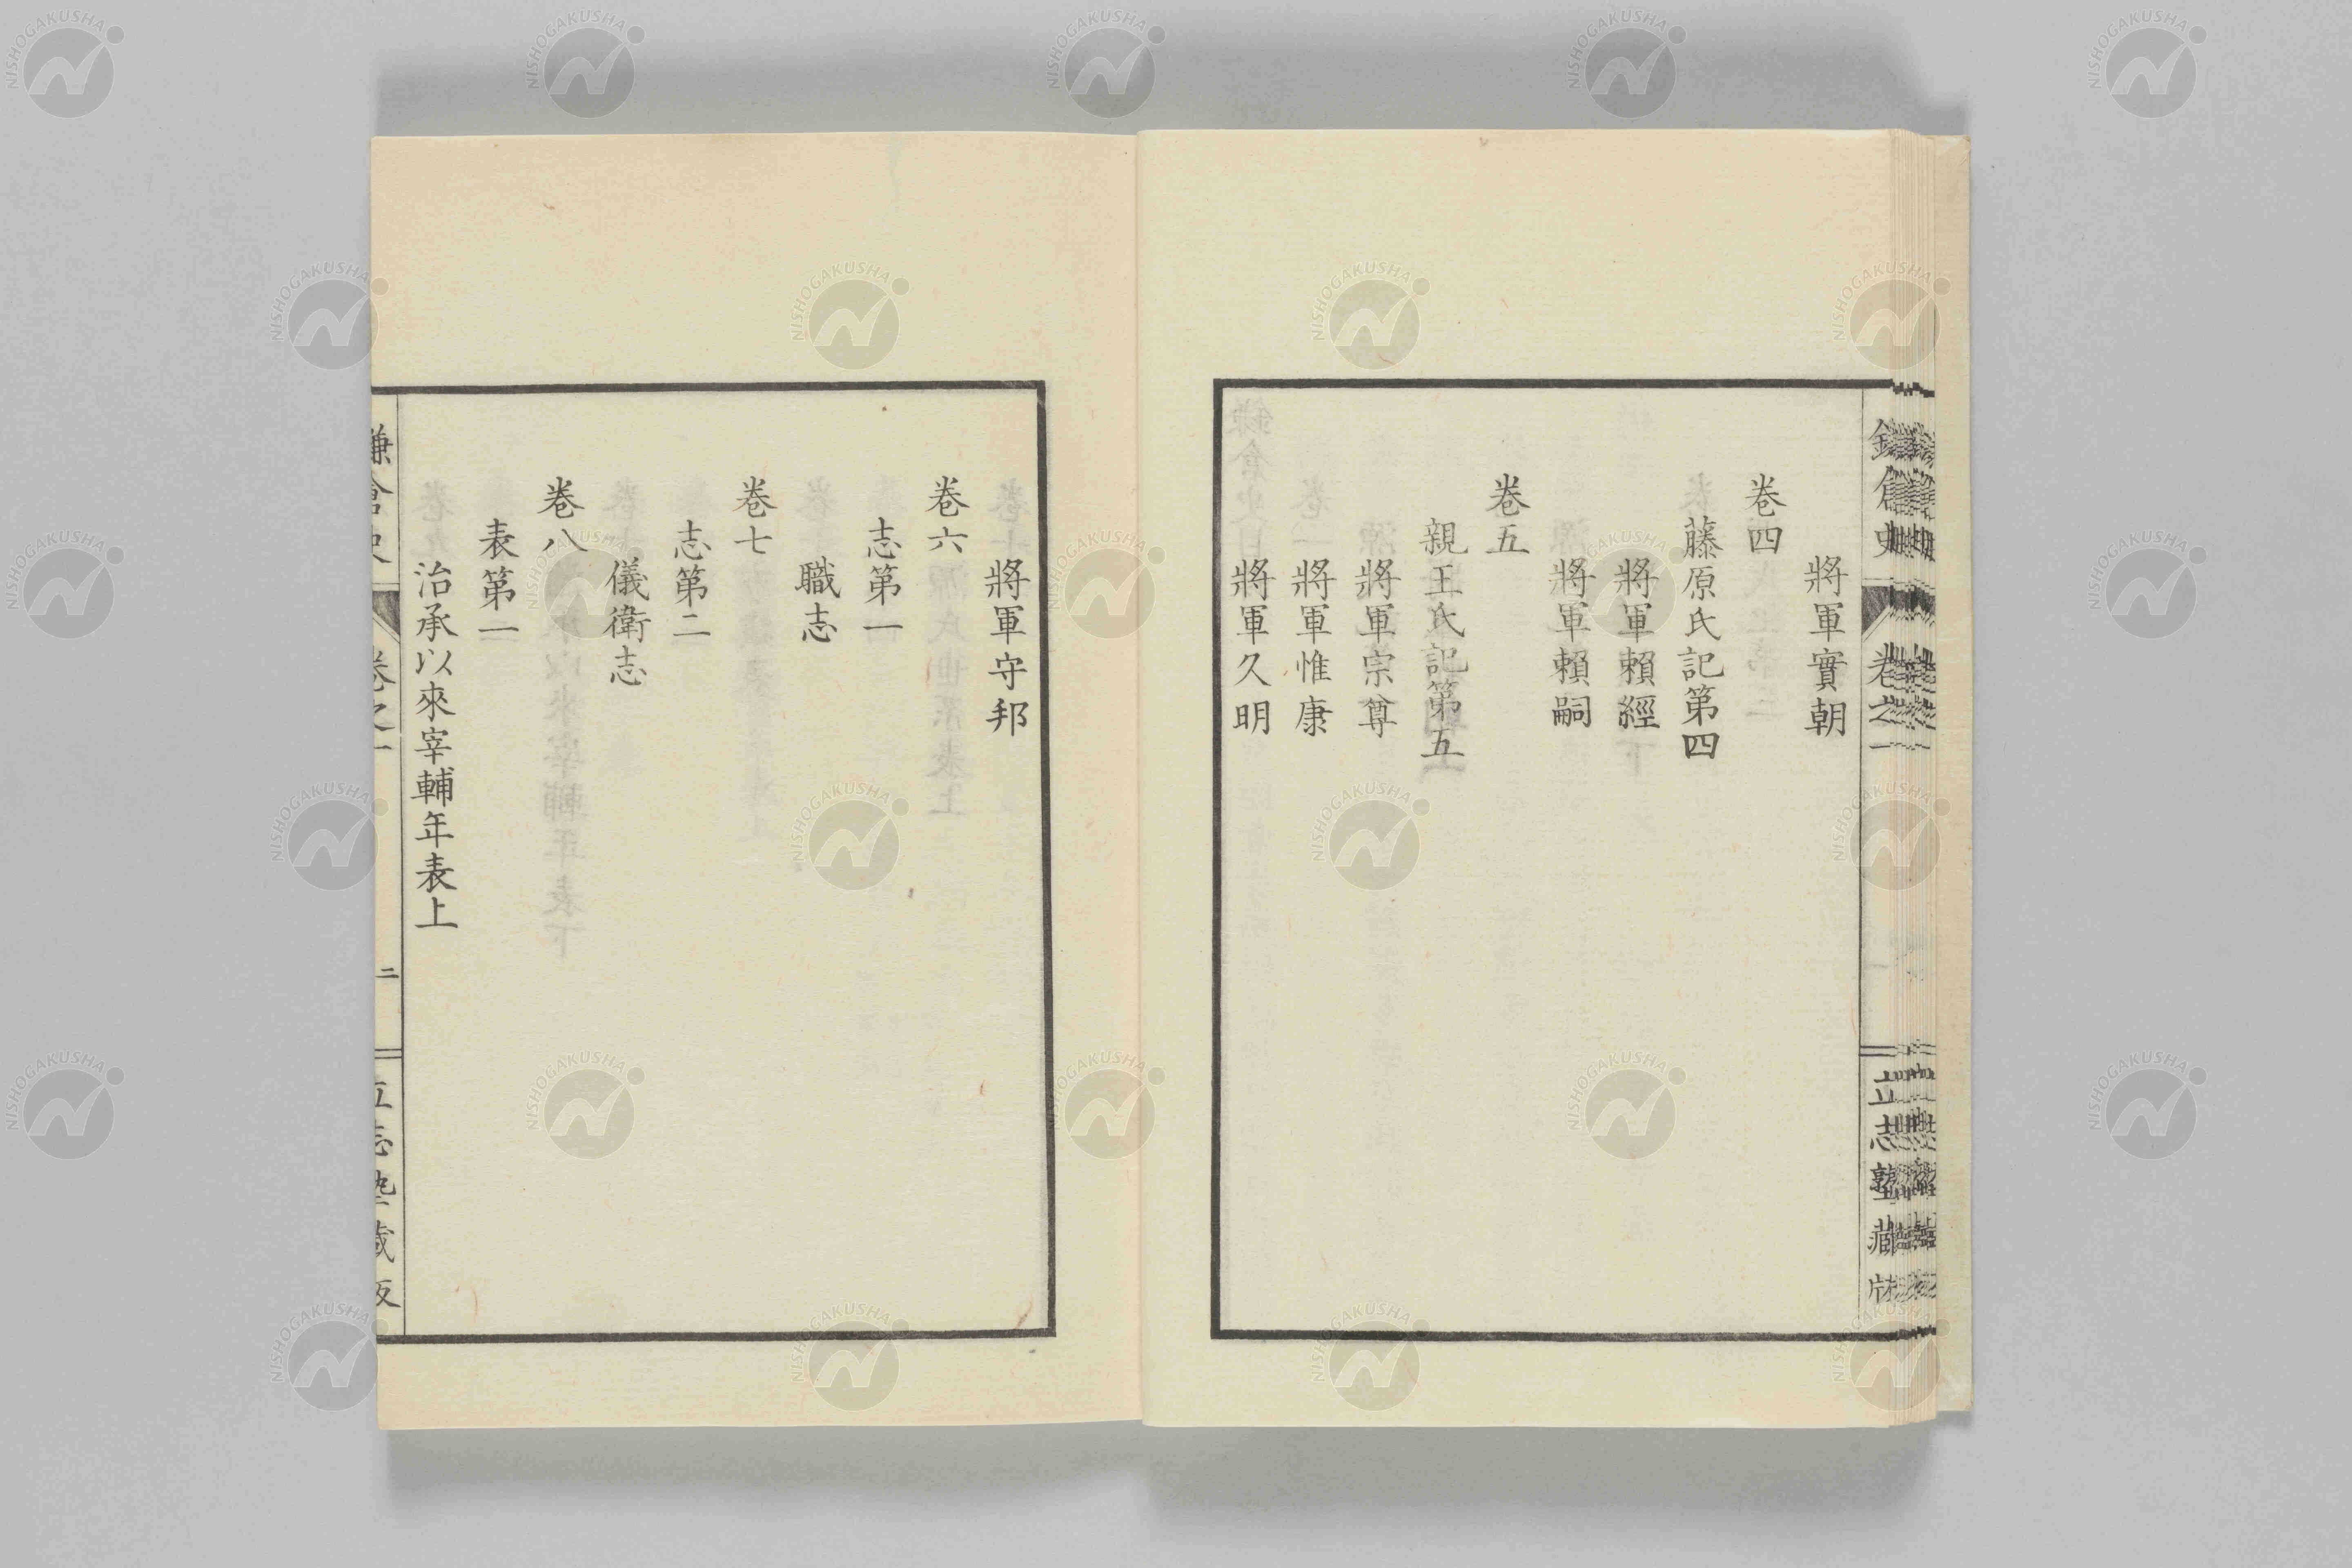 鎌倉史 卷之一 立志塾藏版
將軍實朝
卷四
藤原氏記第四
將軍賴經
將軍賴嗣
卷五
親王氏記第五
將軍宗尊
將軍惟康
將軍久明
將軍守邦
卷六
志第一
職志
卷七
志第二
儀衛志
卷八
表第一
治承以來宰輔年表上
鎌倉史 卷之一 二 立志塾藏版
NISHOGAKUSHA